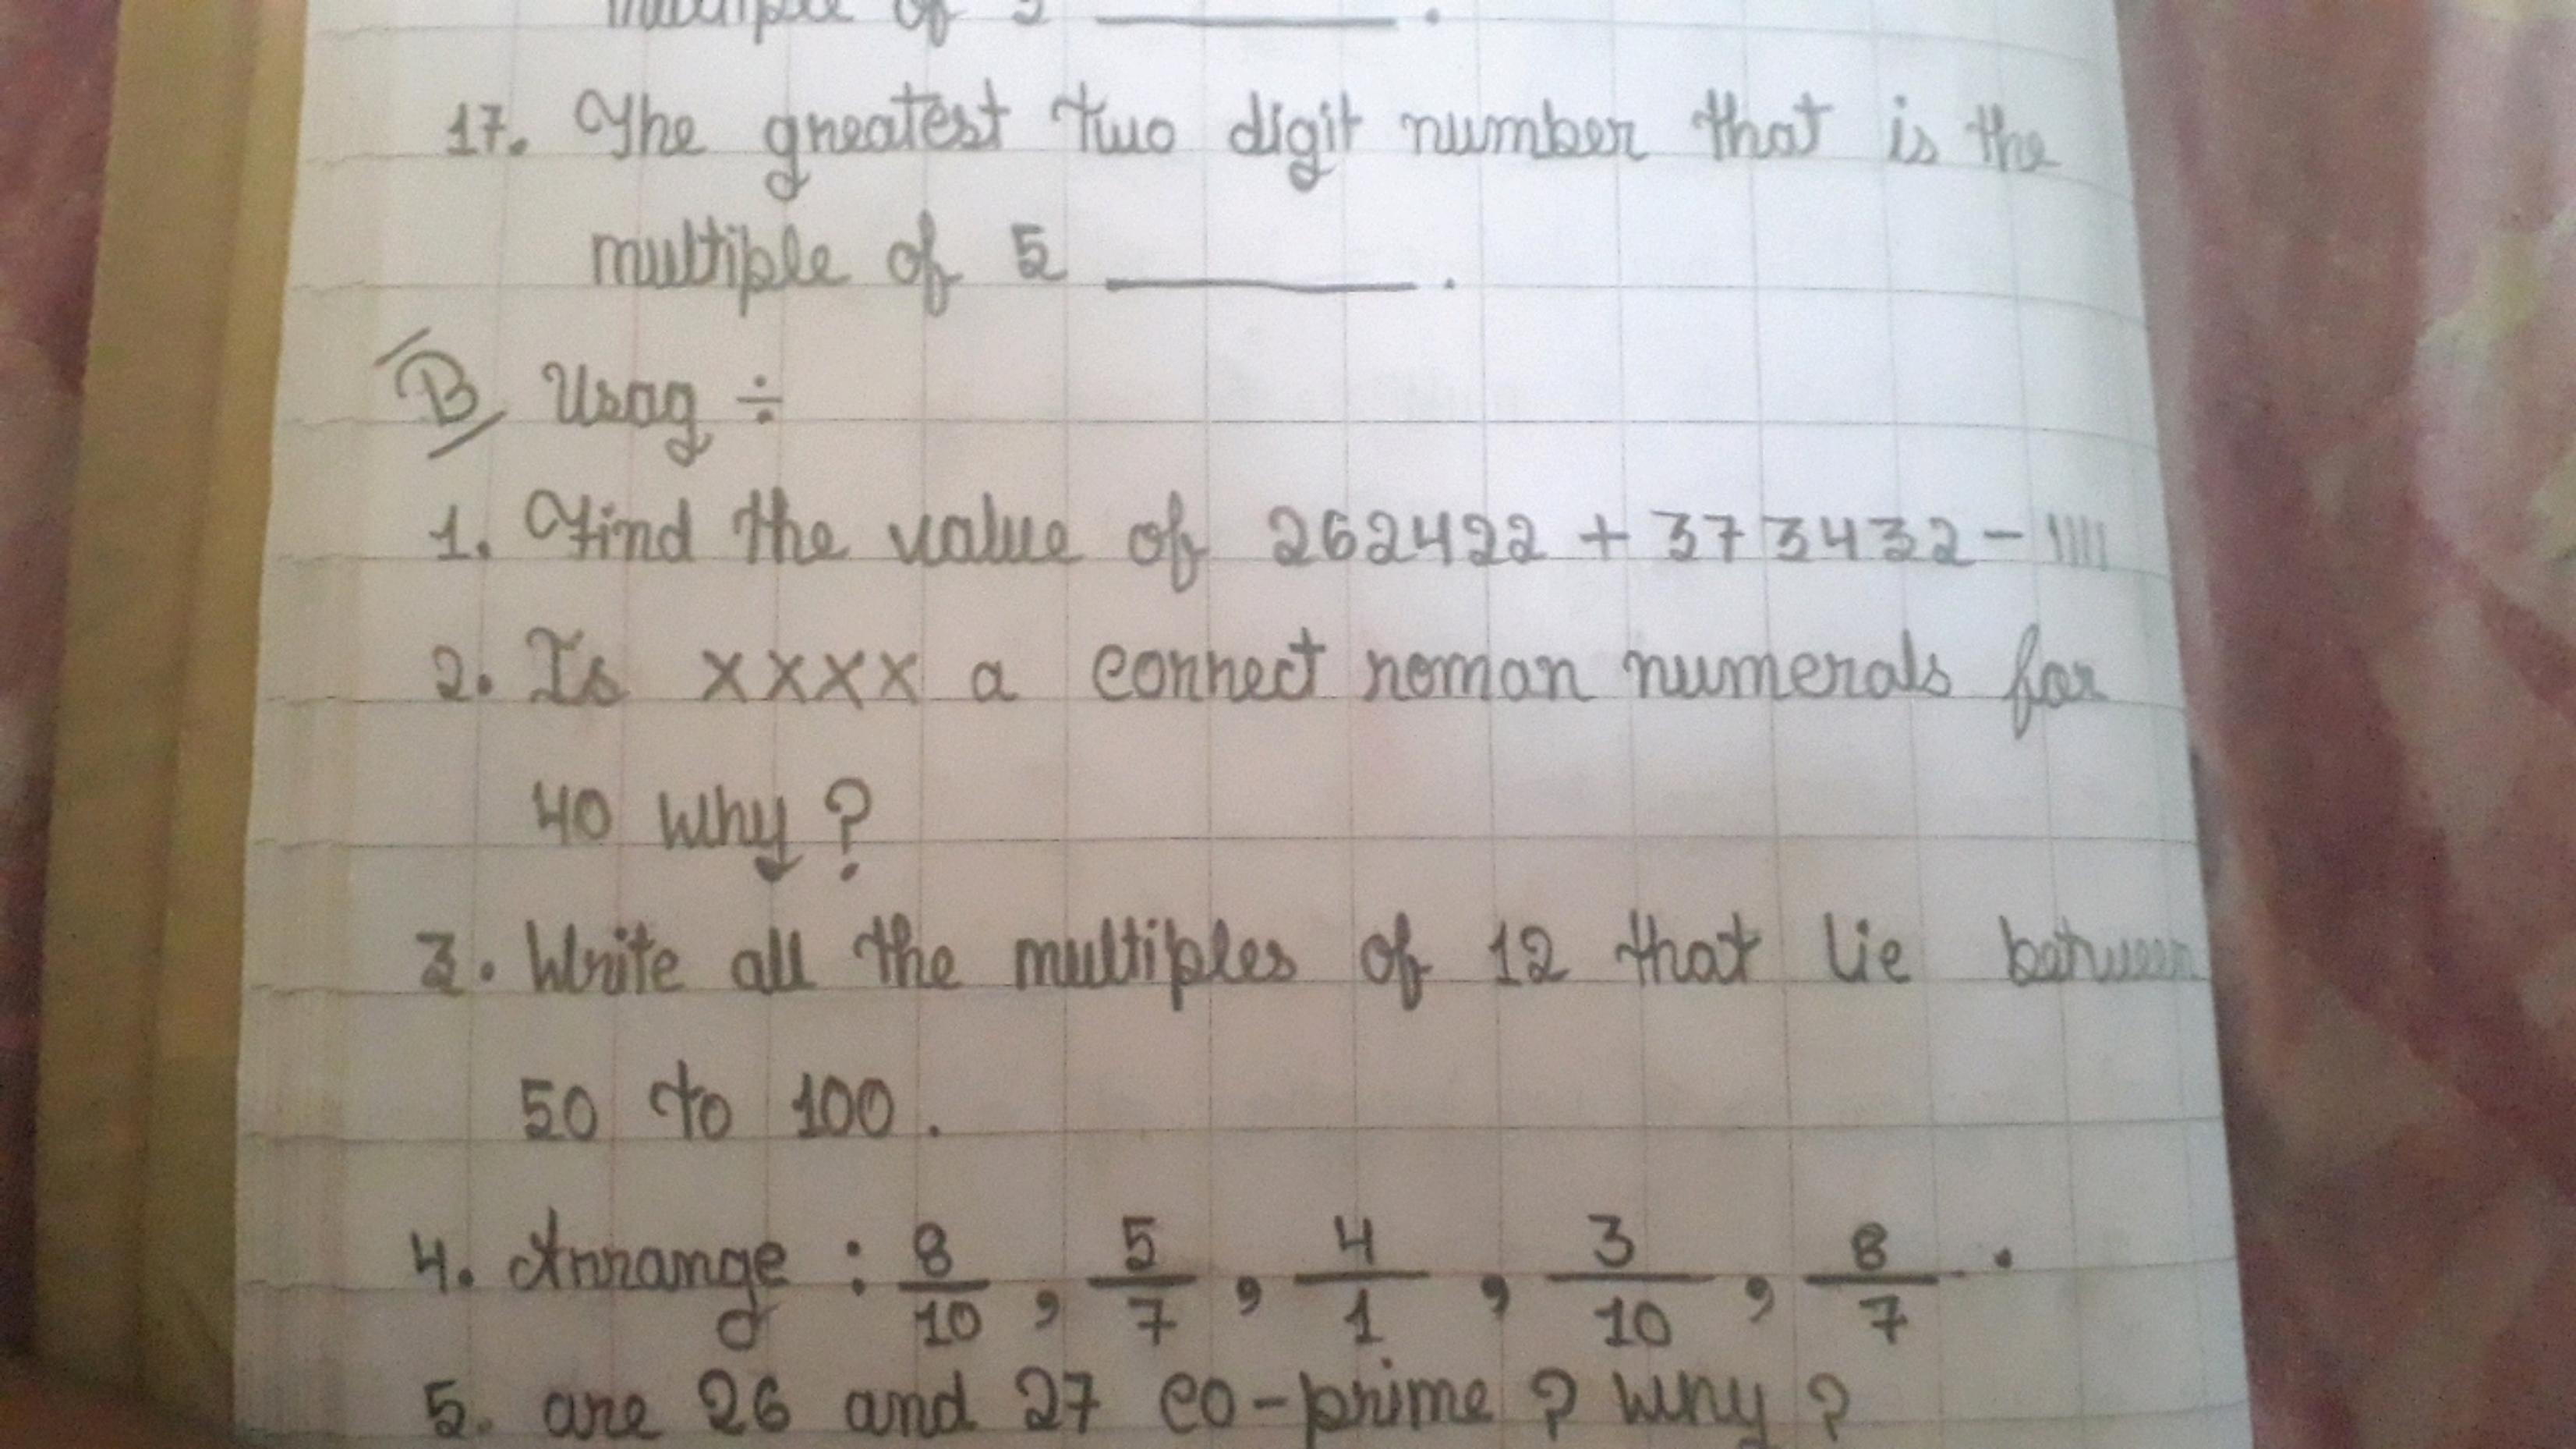 multiple of 5 ________.
17. The greatest two digit number that is the
multiple of 5 ________.
B Usag ÷
1. Find the value of 262422 + 373432 - 11111
2. Is XXXX a correct roman numerals for
40 why?
3. Write all the multiples of 12 that lie between
50 to 100.
4. Arrange : 8/10, 5/7, 4/1, 3/10, 8/7.
5. are 26 and 27 co-prime? why?